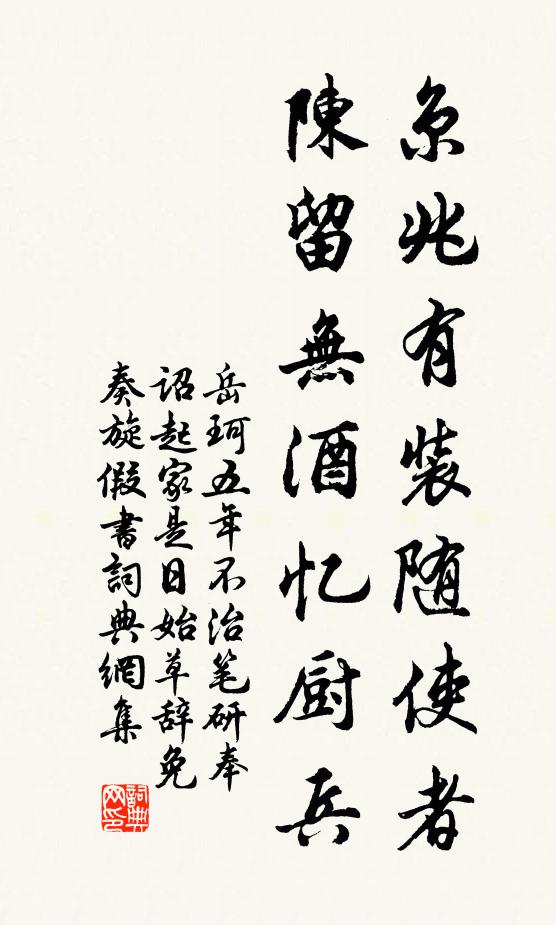 京兆有装随使者
陳留無酒忆厨兵
岳珂五年不治笔研奉
诏起家是日始草辞免
奏旋假書詞典網集
詞典
网印